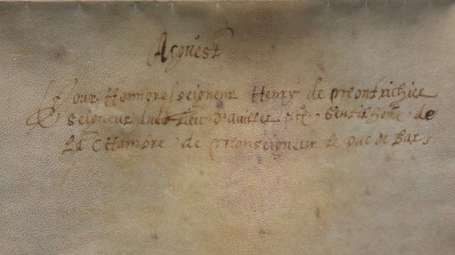 Acquest
Pour Honnoré seigneur Henry de
seigneur dudit lieu d'auillers gentilhome de
La Chambre de Monseigneur le Duc de Bar,